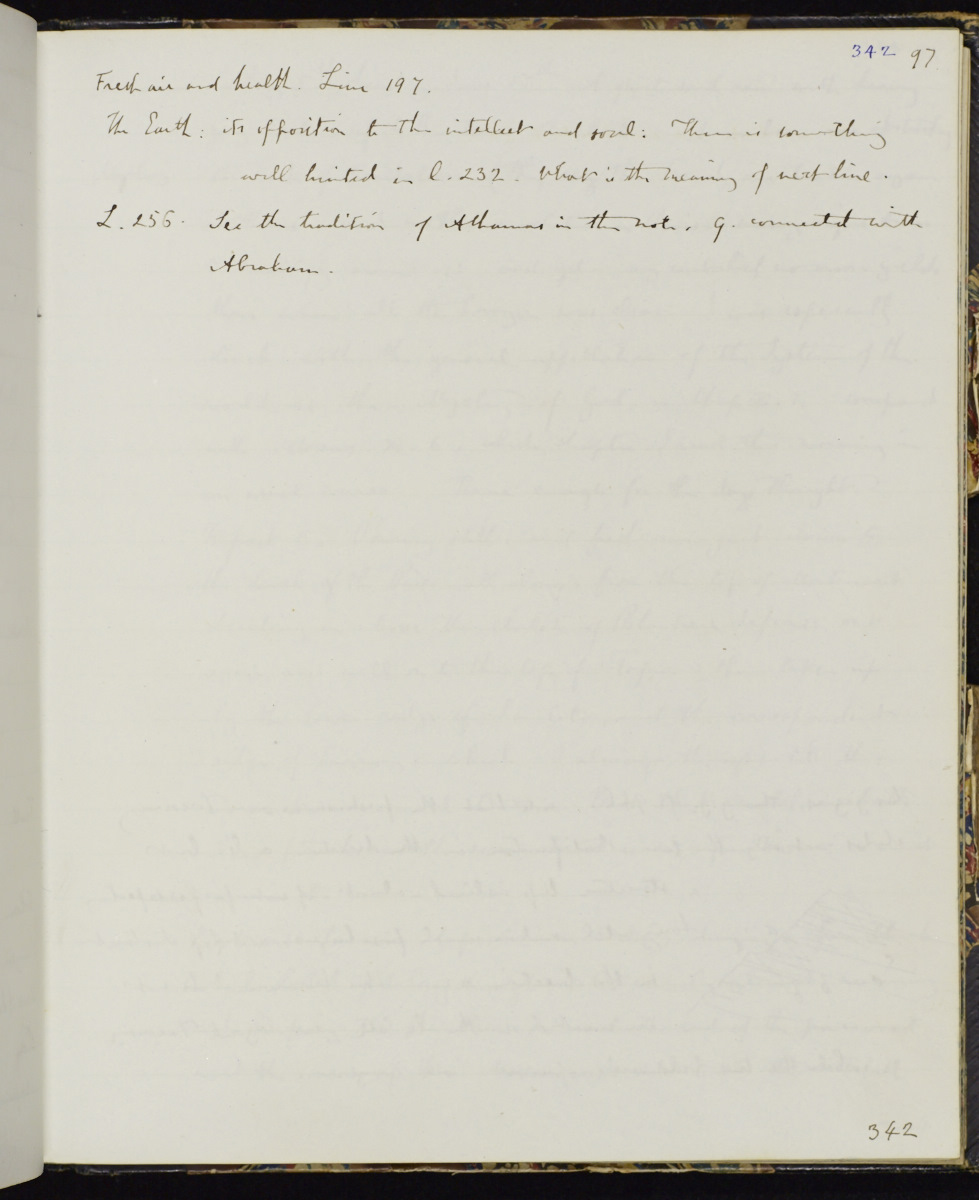 342 97
Fresh air and health. Line 197.
The Earth: its opposition to the intellect and soul: There is something
well hinted in l. 232. What is the meaning of next line.
L. 256. See the tradition of Athamas in the note. Q. connected with
Abraham.
342